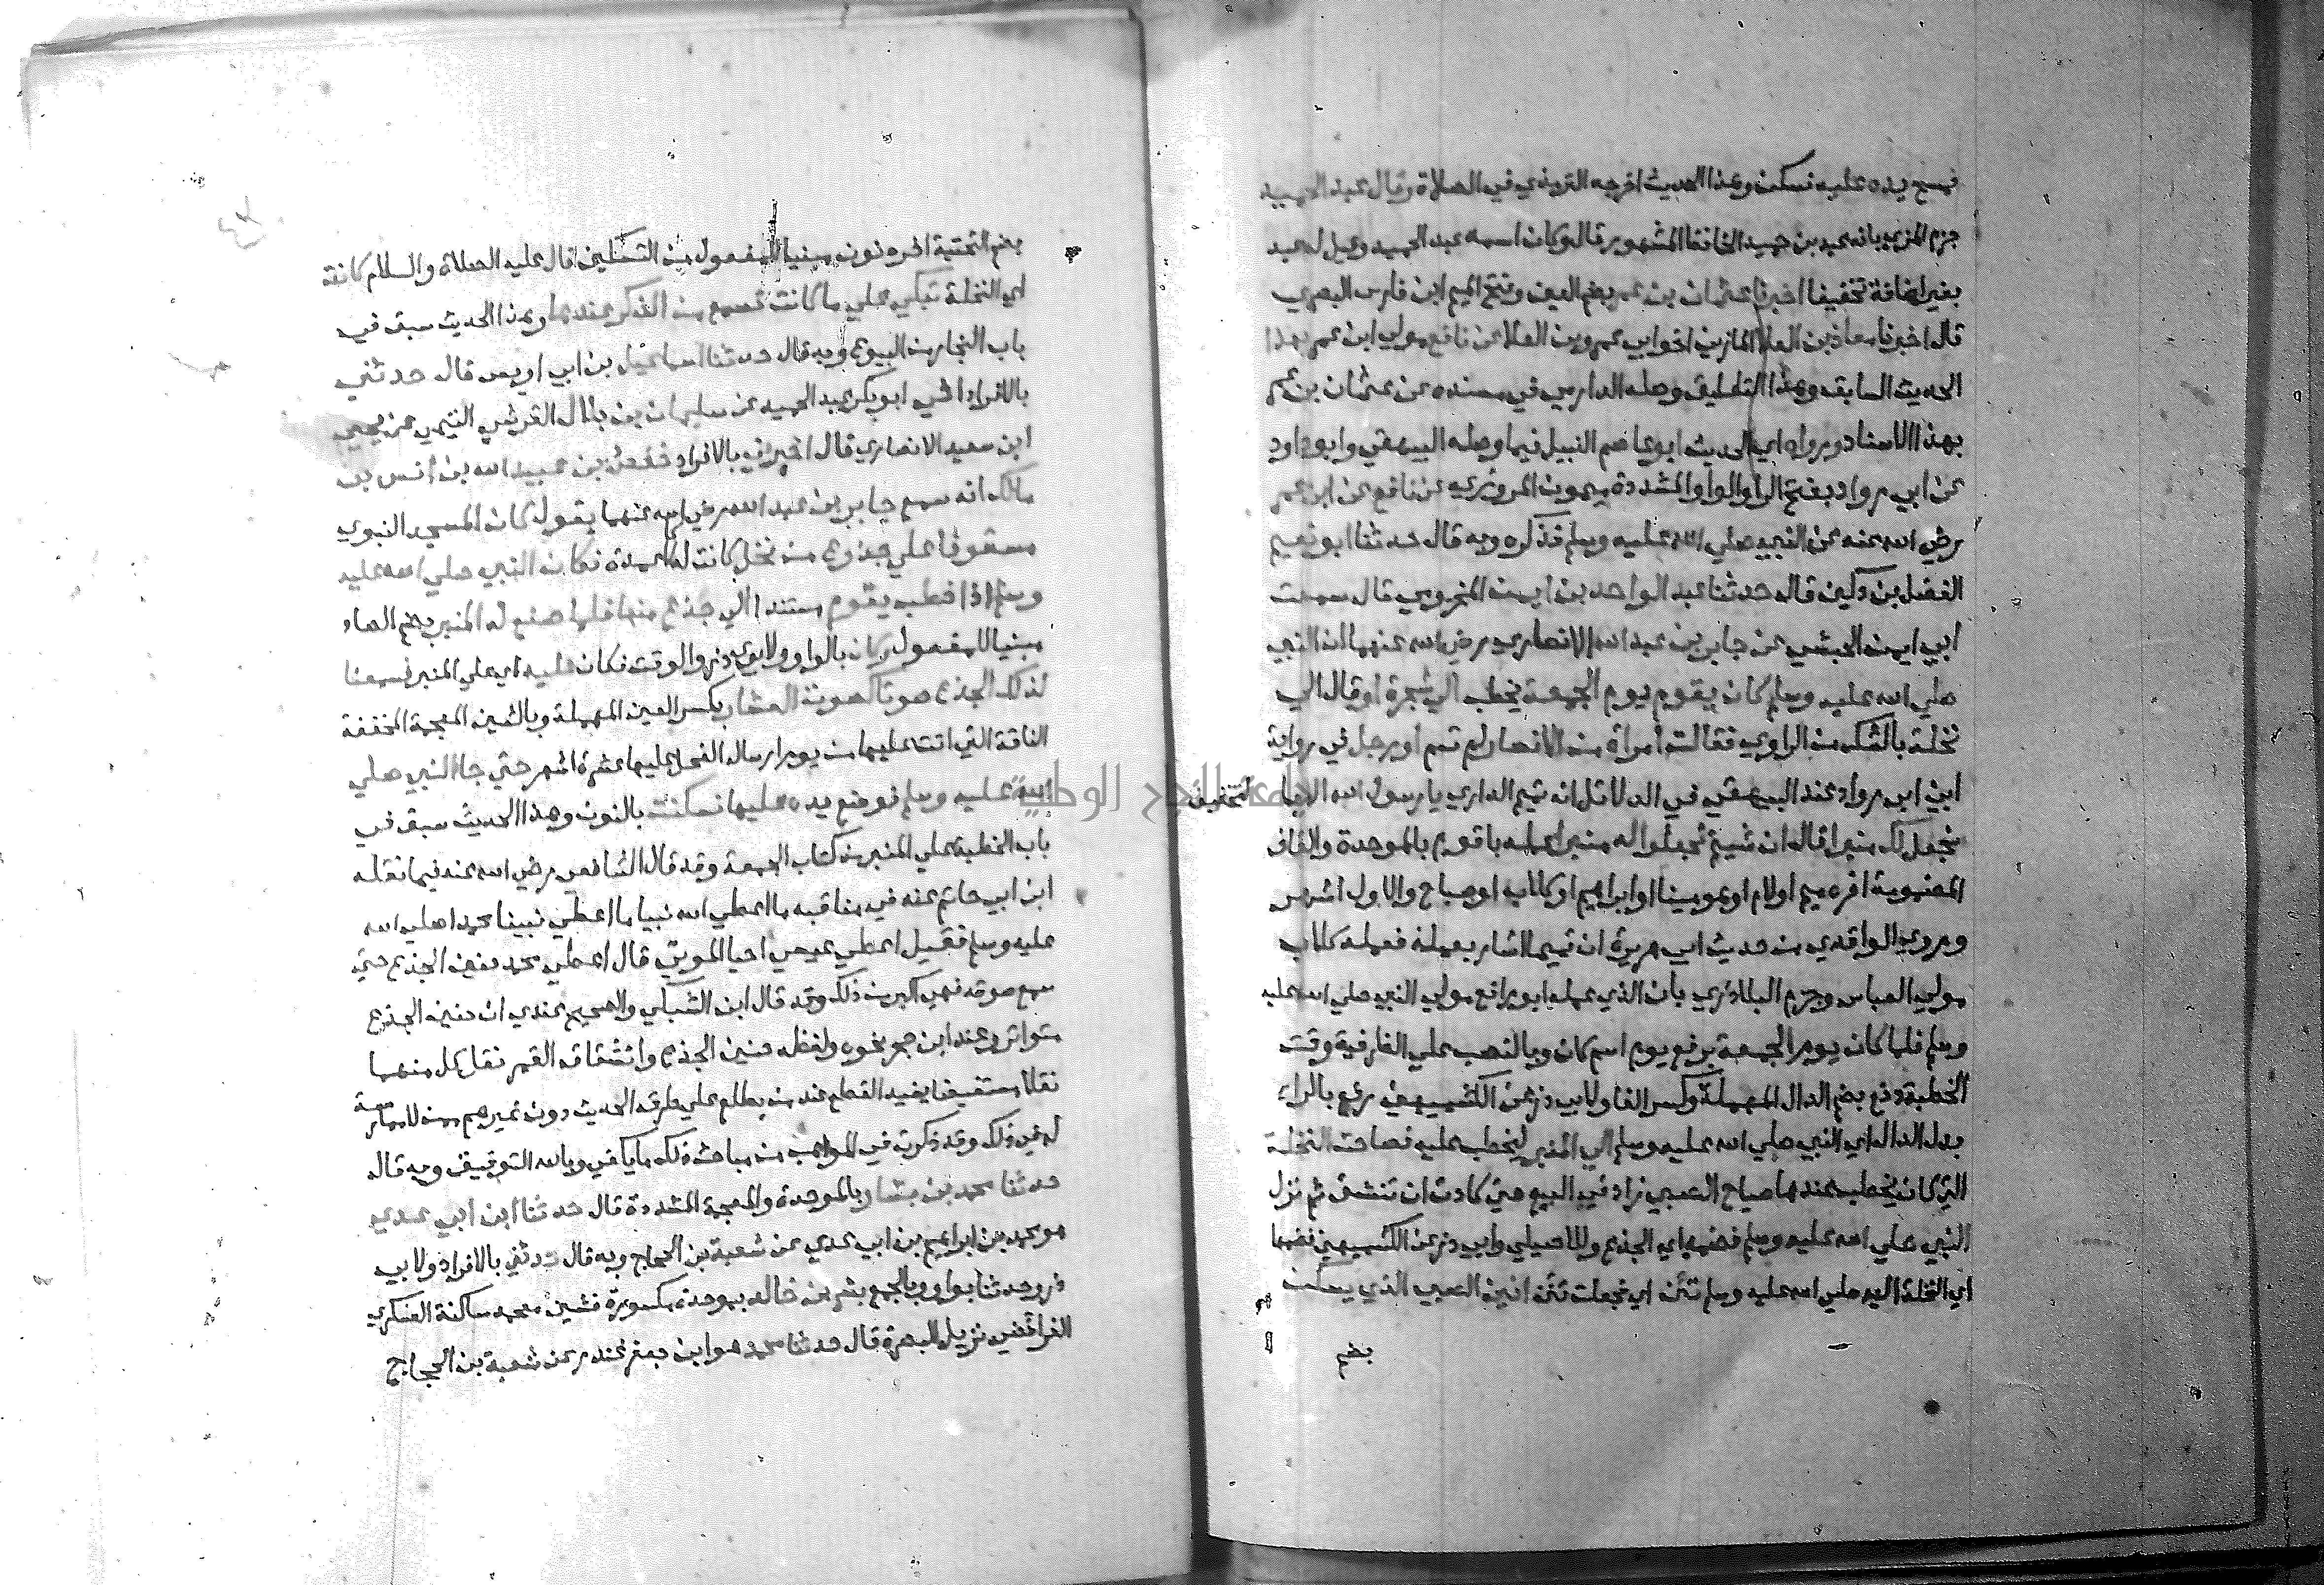 فمسح يده عليه فسكن وهذا الحديث اخرجه الترمذي في الصلاة وقال عبد الحميد
جزم المزي بانه عبد بن حميد الحافظ المشهور قال وكان اسمه عبد الحميد وقيل له عبد
بغير اضافة تخفيفا اخبرنا عثمان بن عمر بضم العين وفتح الميم ابن فارس البصري
قال اخبرنا معاذ بن العلا المازني اخو ابي عمرو بن العلا عن نافع مولي ابن عمر بهذا
الحديث السابق وهذا التعليق وصله الدارمي في مسنده عن عثمان بن عمر
بهذا الاسناد ورواه اي الحديث ابو عاصم النبيل فيما وصله البيهقي وابو داود
عن ابي رواد بفتح الرا والواو المشددة ميمون المروزي عن نافع عن ابن عمر
رضي الله عنه عن النبي صلي الله عليه وسلم فذكره وبه قال حدثنا ابو نعيم
الفضل بن دكين قال حدثنا عبد الواحد بن ايمن المخزومي قال سمعت
ابي ايمن الحبشي عن جابر بن عبد الله الانصاري رضي الله عنهما ان النبي
صلي الله عليه وسلم كان يقوم يوم الجمعة يخطب الي شجرة او قال الي
نخلة بالشك من الراوي فقالت امراة من الانصار لم تسم او رجل في رواية
ابن ابي رواد عند البيهقي في الدلائل انه تميم الداري يا رسول الله الا بالتخفيف
نجعل لك منبرا قال ان شيتم فجعلوا له منبرا عمله باقوم بالموحدة والقاف
المضمومة اخره ميم او لام او هو مينا او ابراهيم او كلاب او صباح والاول اشهر
وروي الواقدي من حديث ابي هريرة ان تميما اشار بعمله فعمله كلاب
مولي العباس وجزم البلاذري بان الذي عمله ابو رافع مولي النبي صلي الله عليه
وسلم فلما كان يوم الجمعة برفع يوم اسم كان وبالنصب علي الظرفية وقت
الخطبة دفع بضم الدال المهملة وكسر الفا ولابي ذر عن الكشميهني رفع بالراء
بدل الدال اي النبي صلي الله عليه وسلم الي المنبر ليخطب عليه فصاحت النخلة
التي كان يخطب عندها صياح الصبي زاد في البيع حتي كادت ان تنشق ثم نزل
النبي صلي الله عليه وسلم فضمه اي الجذع وللاصيلي وابي ذر عن الكشميهني فضمها
اي النخلة اليه صلي الله عليه وسلم تئن اي فجعلت تئن انين الصبي الذي يسكن
بضم
بضم التحتية اخره نون مبنيا للمفعول من التسكين قال عليه الصلاة والسلام كانت
اي النخلة تبكي علي ما كانت تسمع من الذكر عندها وهذا الحديث سبق في
باب النجار من البيوع وبه قال حدثنا اسماعيل بن ابي اويس قال حدثني
بالافراد اخي ابو بكر عبد الحميد عن سليمان بن بلال القرشي التيمي عن يحيي
ابن سعيد الانصاري قال اخبرني بالافراد حفص بن عبيد الله بن انس بن
مالك انه سمع جابر بن عبد الله رضي الله عنهما يقول كان المسجد النبوي
مسقوفا علي جذوع من نخل كانت له اعمدة فكان النبي صلي الله عليه
وسلم اذا خطب يقوم مستندا الي جذع منها فلما صنع له المنبر بضم الصاد
مبنيا للمفعول وكان بالواو ولابوي ذر والوقت فكان عليه اي علي المنبر فسمعنا
لذلك الجذع صوتا كصوت العشار بكسر العين المهملة وبالشين المعجمة المخففة
الناقة التي اتت عليها من يوم ارسال الفحل عليها عشرة اشهر حتي جا النبي صلي
الله عليه وسلم فوضع يده عليها فسكنت بالنون وهذا الحديث سبق في
باب الخطبة علي المنبر من كتاب الجمعة وقد قال الشافعي رضي الله عنه فيما نقله
ابن ابي حاتم عنه في مناقبه ما اعطي الله نبيا ما اعطي نبينا محمدا صلي الله
عليه وسلم فقيل اعطي عيسي احيا الموتي قال اعطي محمد حنين الجذع حتي
سمع صوته فهي اكبر من ذلك وقد قال ابن السبكي والصحيح عندي ان حنين الجذع
متواتر وعند ابن حجر نحوه ولفظه حنين الجذع وانشقاق القمر نقل كل منهما
نقلا مستفيضا يفيد القطع عند من يطلع علي طرق الحديث دون غيرهم ممن لا ممارسة
له في ذلك وقد ذكرت في المواهب من مباحث ذلك ما يكفي وبالله التوفيق وبه قال
حدثنا محمد بن بشار بالموحدة والمعجمة المشددة قال حدثنا ابن ابي عدي
هو محمد بن ابراهيم بن ابي عدي عن شعبة بن الحجاج وبه قال حدثني بالافراد ولابي
ذر وحدثنا بواو وبالجمع بشر بن خالد بموحدة مكسورة فشين معجمه ساكنة العسكري
الفرائضي نزيل البصرة قال حدثنا محمد هو ابن جعفر غندر عن شعبة بن الحجاج
جامعة النجاح الوطنية